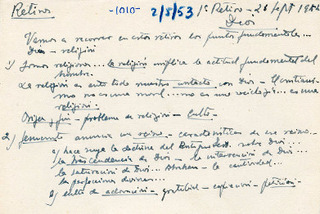 Retiro -1010- 2/5/53 1º Retiro - 2
Dios
Vamos a recorrer en estos retiros los puntos fundamentales...
Dios - religión
1) Somos religiosos... la religión implica la actitud fundamental del
hombre.
La religión es ante todo nuestro contacto con Dios - El cristianis-
mo no es una moral... no es una
religión.
Origen y fin - problema de religión - Culto.
2) anuncia un reino - características de ese reino...
a) hace suya la doctrina del Antiguo test. sobre Dios...
la trascendencia de Dios - la intervención de Dios...
la de Dios... la
las perfecciones divinas...
b) culto de adoración - gratitud - expiación - petición.